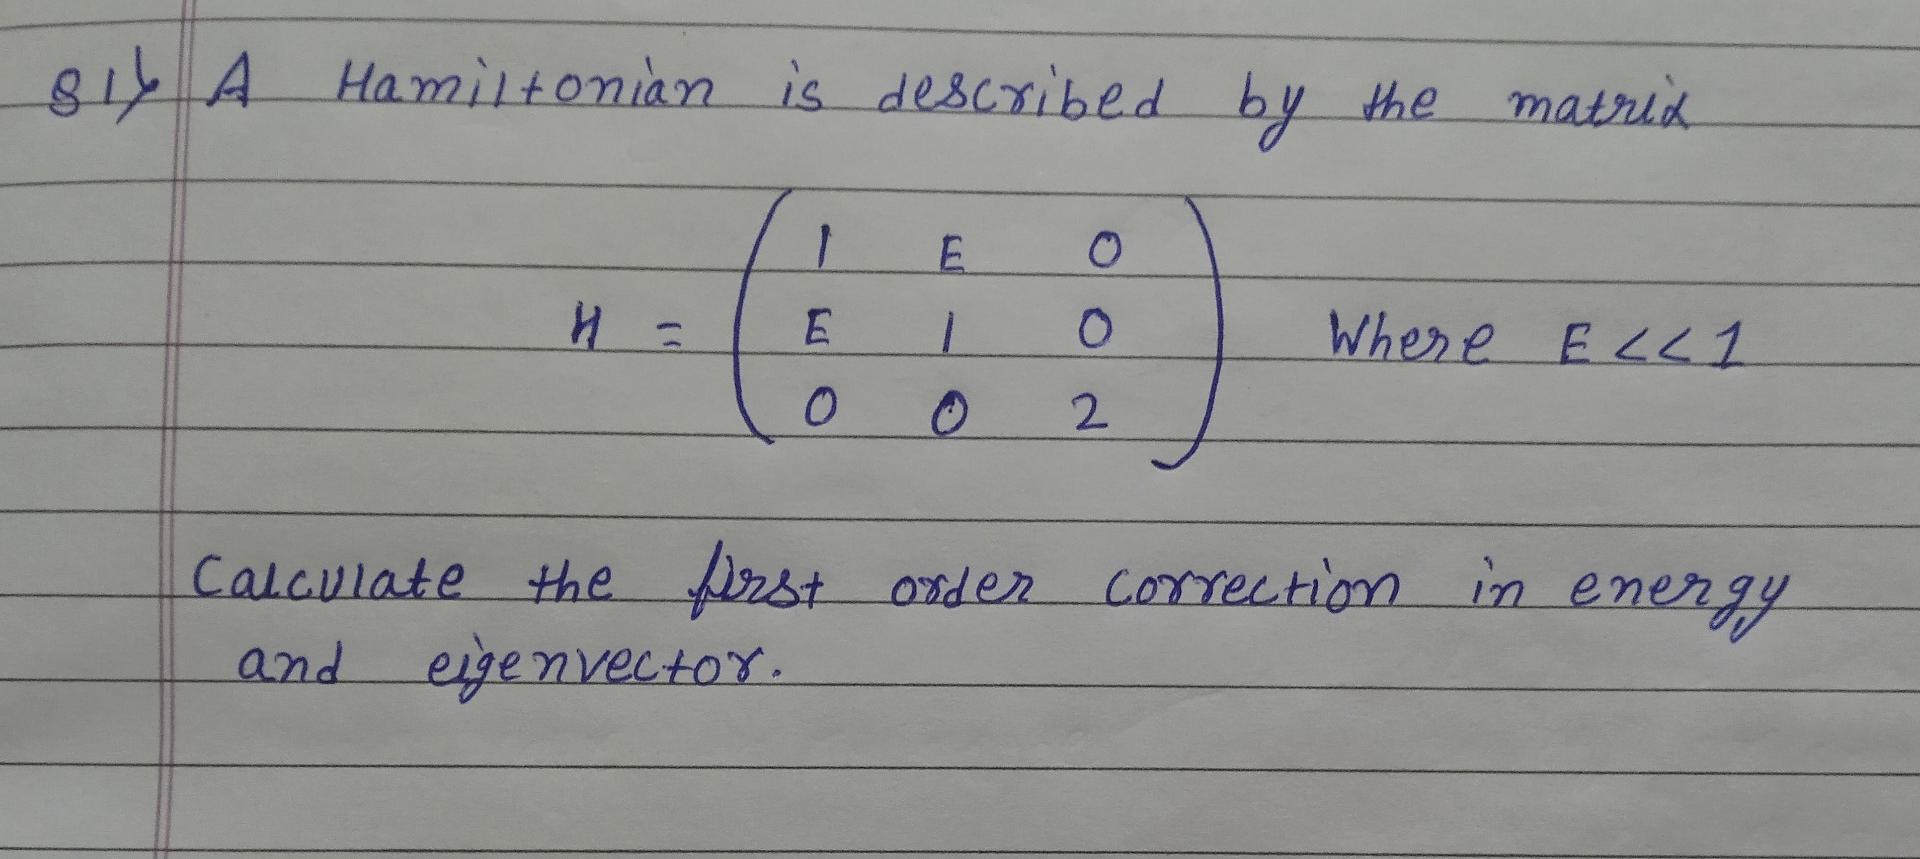 81) A Hamiltonian is described by the matrix
1 E 0
H = E 1 0 Where E << 1
0 0 2
Calculate the first order correction in energy
and eigenvector.